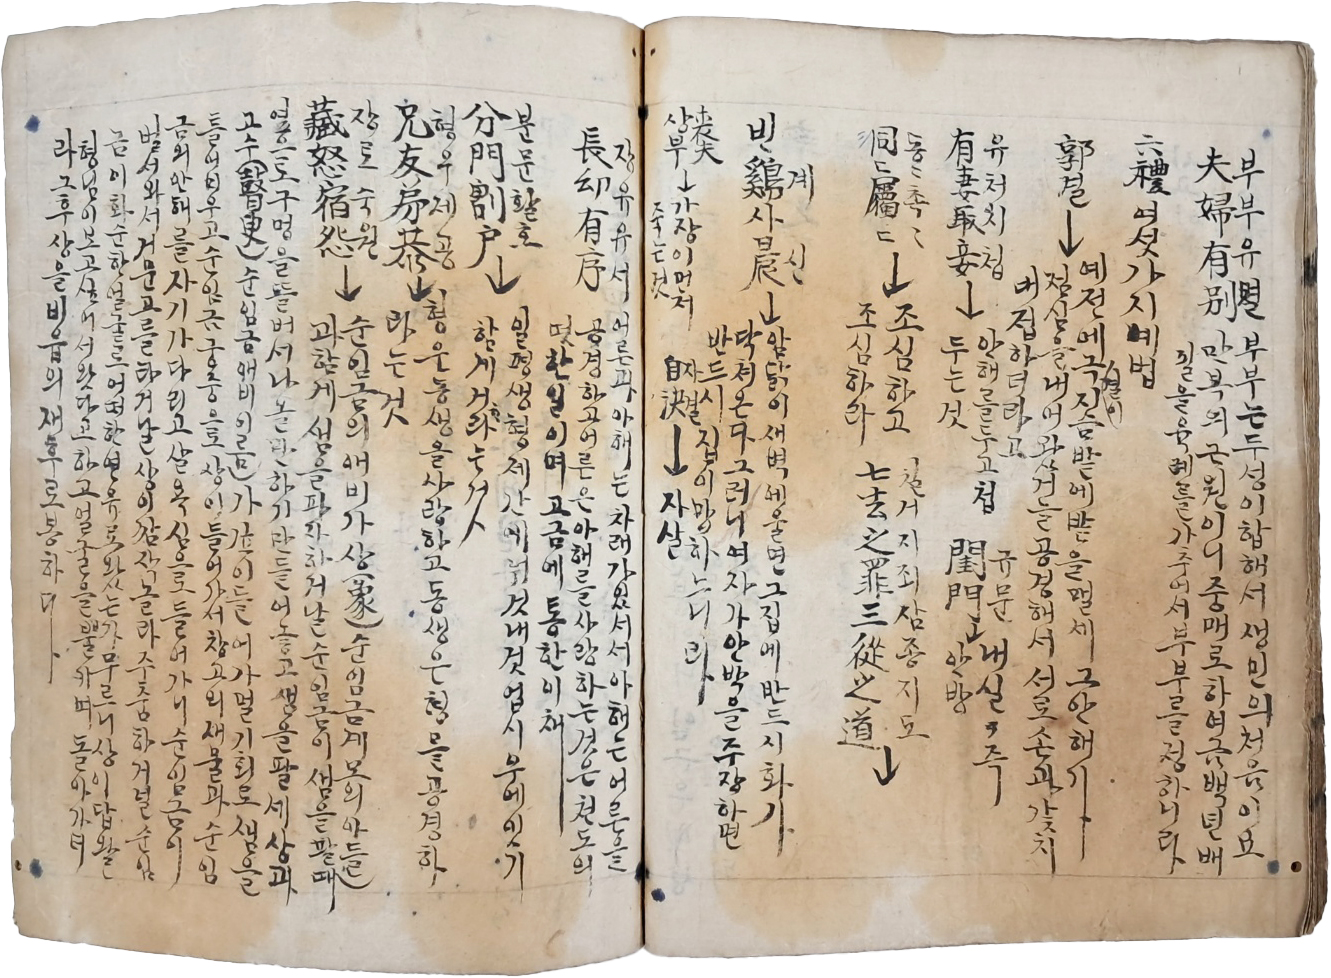 부부유별 부부는 두 성이 합해서 생민의 처음이요
夫婦有別 만복의 근원이니 중매로 하여금 백년 배
필을 육례를 가추어서 부부를 정하니라
六禮 여섯가지 예법
郭결↓ 예전에 극결이 지슴 밭에 밭을 맬세 그 안해가
점심을 내어 와서는 공경해서 서로 손과 갓치
버접하더라고
유처취첩
有妻取妾↓ 안해를 두고 첩
두는 것
규문
閨門↓ 내실
안방
동동촉촉
洞ᄃ屬ᄃ↓ 조심하고
조심하라
칠거지죄 삼종지도
七去之罪 三從之道↓
계 신
빈鷄사晨↓ 암닭이 새벽에 울면 그 집에 반드시 화가
닥쳐온다 그러니 여자가 안박을 주장하면
반드시 집이 망하느니라
喪夫
상부↓ 가장이 먼저
죽는 것
자결
自決↓ 자살
장유유서 어른과 아해는 차래가 있서서 아해는 어른을
長幼有序 공경하고 어른은 아해를 사랑하는 것은 천도의
떳한 일이며 고금에 통한 이채
분문할호
分門割户↓ 일평생 형제간에 네것 내것 업시 우애 있기
함게 거하라는 것
형우제공
兄友弟恭↓ 형은 동생을 사랑하고 동생은 형을 공경하
라는 것
장로숙원
藏怒宿怨↓ 순임금의 애비가 상(象)순임금 계모의 아들
과 함게 샘을 파자 하거날 순임금이 샘을 팔 때
열흐로 구멍을 뚤버서 나올 만하기 만들어 놓고 샘을 팔세 상과
고수(瞽叟)순임금 애비 이름)가 같이 들어가 멀기회로 샘을
틀어 메우고 순임금 궁중으로 상이 들어가서 창고의 재물과 순임
금의 안해를 자기가 다리고 살 욕심으로 들어가니 순임금이
벌서 와서 거문고를 타거날 상이 깜작 놀라 주춤하거널 순임
금이 화순한 얼굴로 어떠한 연유로 왔는가 무르니 상이 답왈
형님이 보고십어서 왓다고 하고 얼굴을 붉하며 돌아가더
라 그 후 상을 비읍의 재후로 봉하더라